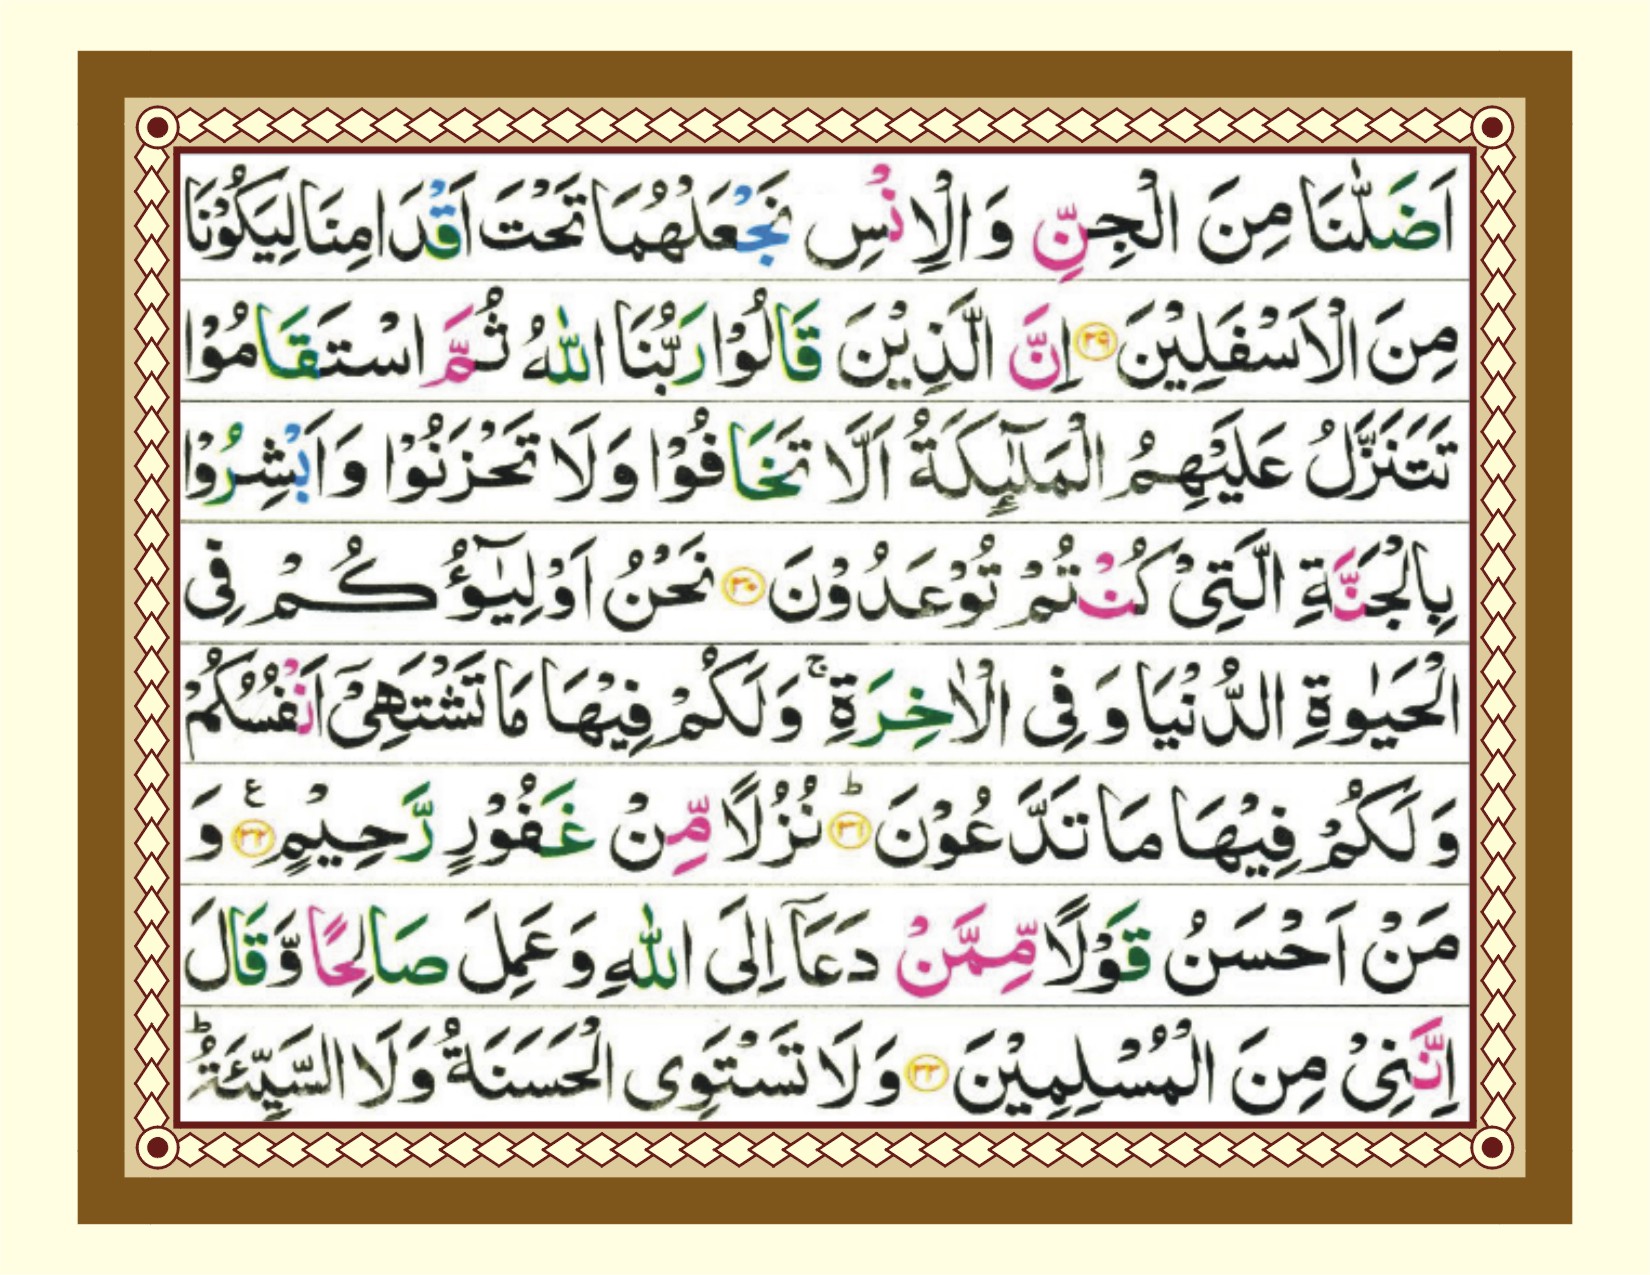 اَضَلّٰنَا مِنَ الْجِنِّ وَالْاِنْسِ نَجْعَلْهُمَا تَحْتَ اَقْدَامِنَا لِيَكُوْنَا
مِنَ الْاَسْفَلِيْنَ ﴿۲۹﴾ اِنَّ الَّذِيْنَ قَالُوْا رَبُّنَا اللّٰهُ ثُمَّ اسْتَقَامُوْا
تَتَنَزَّلُ عَلَيْهِمُ الْمَلٰٓئِكَةُ اَلَّا تَخَافُوْا وَلَا تَحْزَنُوْا وَاَبْشِرُوْا
بِالْجَنَّةِ الَّتِىْ كُنْتُمْ تُوْعَدُوْنَ ﴿۳۰﴾ نَحْنُ اَوْلِيٰٓؤُكُمْ فِى
الْحَيٰوةِ الدُّنْيَا وَفِى الْاٰخِرَةِ ۚ وَلَكُمْ فِيْهَا مَا تَشْتَهِىْٓ اَنْفُسُكُمْ
وَلَكُمْ فِيْهَا مَا تَدَّعُوْنَ ؕ ﴿۳۱﴾ نُزُلًا مِّنْ غَفُوْرٍ رَّحِيْمٍ ﴿۳۲﴾ ع وَ
مَنْ اَحْسَنُ قَوْلًا مِّمَّنْ دَعَآ اِلَى اللّٰهِ وَعَمِلَ صَالِحًا وَّقَالَ
اِنَّنِىْ مِنَ الْمُسْلِمِيْنَ ﴿۳۳﴾ وَلَا تَسْتَوِى الْحَسَنَةُ وَلَا السَّيِّئَةُ ؕ